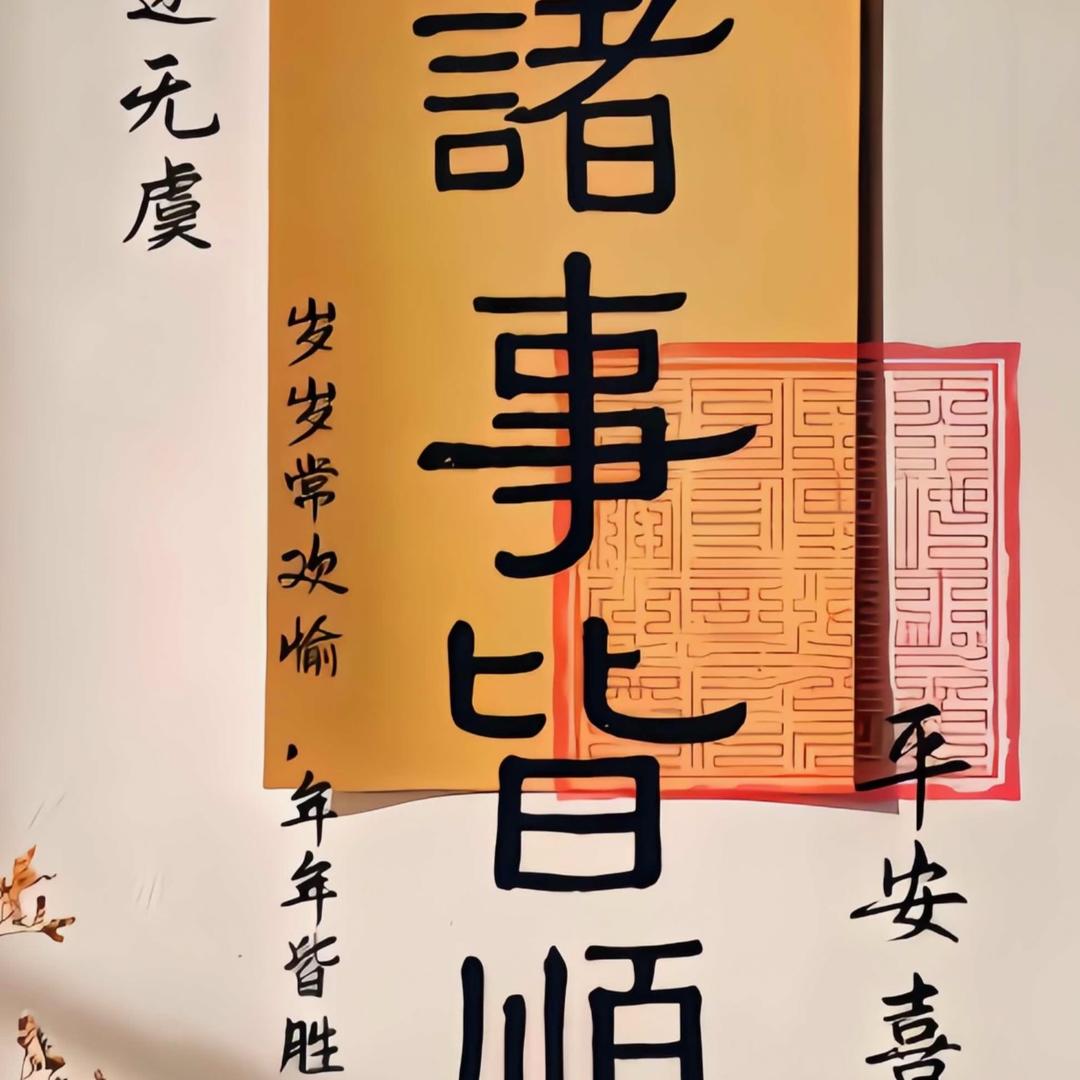 平安喜
諸事皆順
岁岁常欢愉，年年皆胜
无虞